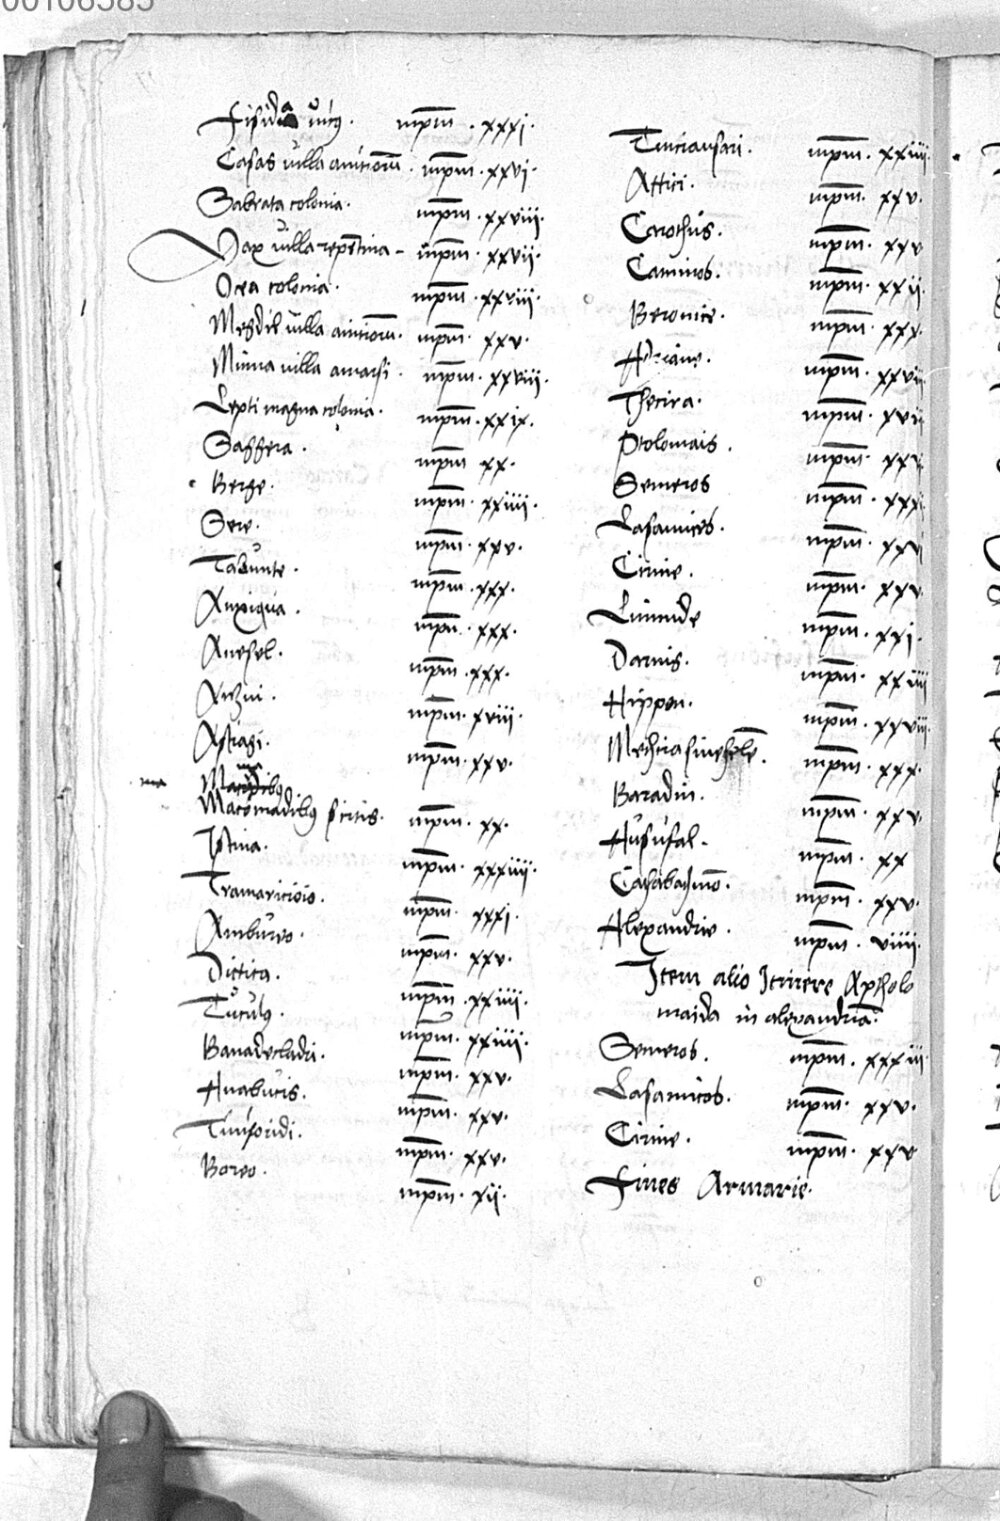 00106585
Fisida vicus. mpm̄. xxxi.
Casas villa anitiorū. mpm̄. xxvi.
Sabrata colonia. mpm̄. xxviii.
Vax villa repentina – mpm̄. xxvii.
Ocea colonia. mpm̄. xxviii.
Megdil villa anitiorū. mpm̄. xxv.
Minna villa amarsi. mpm̄. xxviii.
Lepti magna colonia. mpm̄. xxix.
Saggera. mpm̄ xx.
Berge. mpm̄. xxiiii.
Sere. mpm̄. xxv.
Tabunte. mpm̄. xxx.
Auxiqua. mpm̄. xxx.
Anesel. mpm̄. xxx.
Arzui. mpm̄. xviii.
Astiagi. mpm̄. xxv.
Macomadibus sirtis. mpm̄. xx.
Istina. mpm̄. xxxiiii.
Tramaricioio. mpm̄. xxxi.
Ambureo. mpm̄. xxv.
Dittica. mpm̄. xxiiii.
Tuculus. mpm̄. xxiiii.
Banadecladi. mpm̄. xxv.
Anabucis. mpm̄. xxv.
Tiniforidi. mpm̄. xxv.
Boreo. mpm̄. xii.
Tinciausari. mpm̄. xxiiii.
Attici. mpm̄. xxv.
Corothus. mpm̄. xxv
Caminos. mpm̄. xxii
Beronice. mpm̄. xxx.
Adriane. mpm̄. xxvii
Thecira. mpm̄. xvii
Ptolomais. mpm̄.
Semeros mpm̄.
Lasamices. mpm̄.
Cirine. mpm̄. xxv
Limnide mpm̄. xxi.
Darnis. mpm̄. xxiiii
Hippon. mpm̄. xxviii.
Mechia sinephelē. mpm̄. xxx.
Baradin. mpm̄. xxv
Ausufal. mpm̄. xx
Catabathmō. mpm̄. xxv.
Alexandrie. mpm̄. viiii.
Item alio Itinere Aptolo
maida in alexandriā.
Semeros. mpm̄. xxxiii
Lasamicos. mpm̄. xxv.
Cirine. mpm̄. xxv
Fines Armarie.